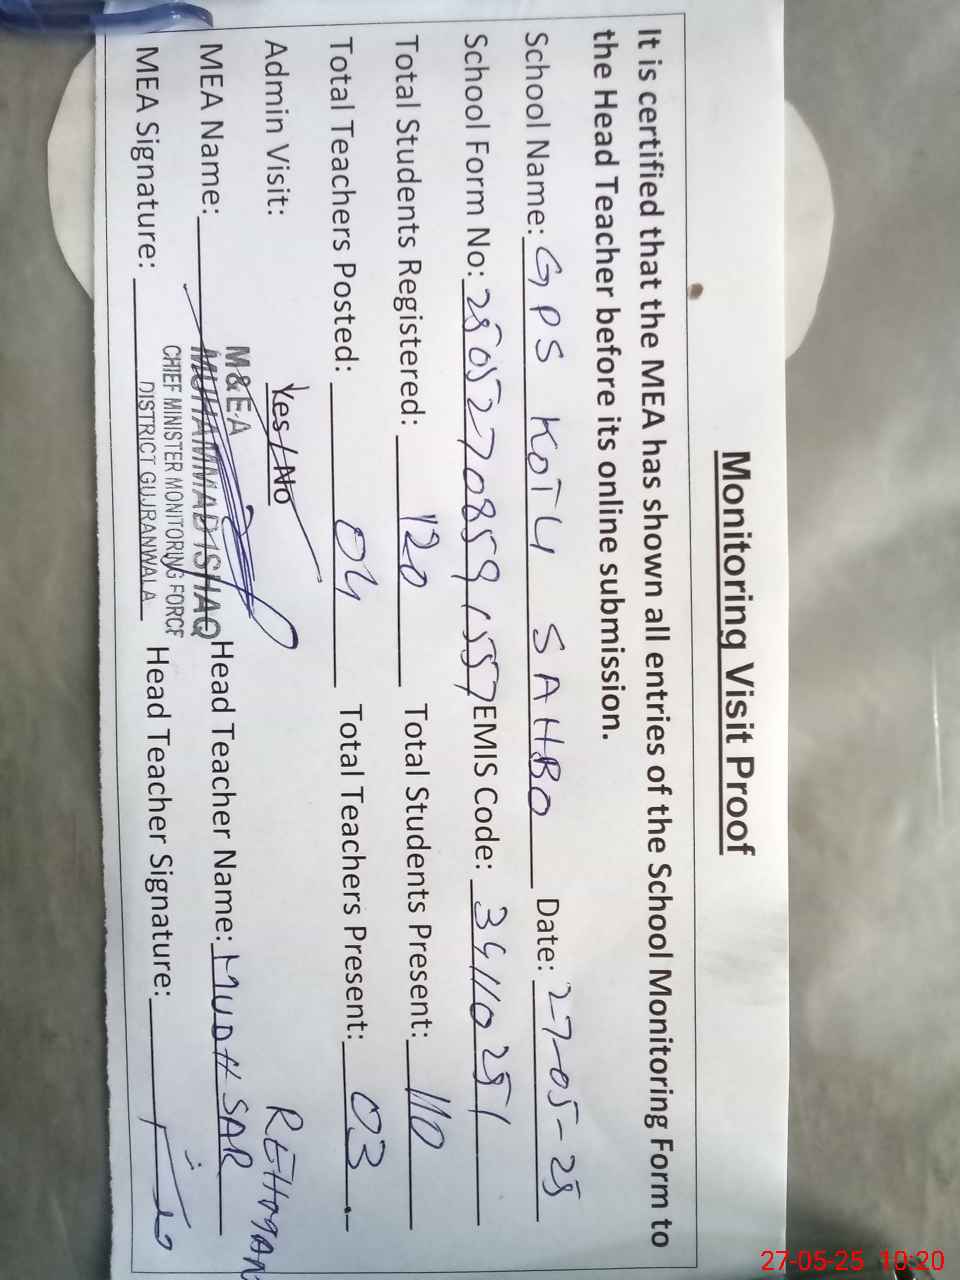 Monitoring Visit Proof
It is certified that the MEA has shown all entries of the School Monitoring Form to
the Head Teacher before its online submission.
School Name: GPS KOTLI SAHBO Date: 27-05-25
School Form No: EMIS Code: 34110251
Total Students Registered: 120 Total Students Present: 110
Total Teachers Posted: 04 Total Teachers Present: 03
Admin Visit: Yes / No
MEA Name: M&EA MUHAMMAD ISHAQ Head Teacher Name:
CHIEF MINISTER MONITORING FORCE
MEA Signature: DISTRICT GUJRANWALA Head Teacher Signature:
27-05-25 10:20